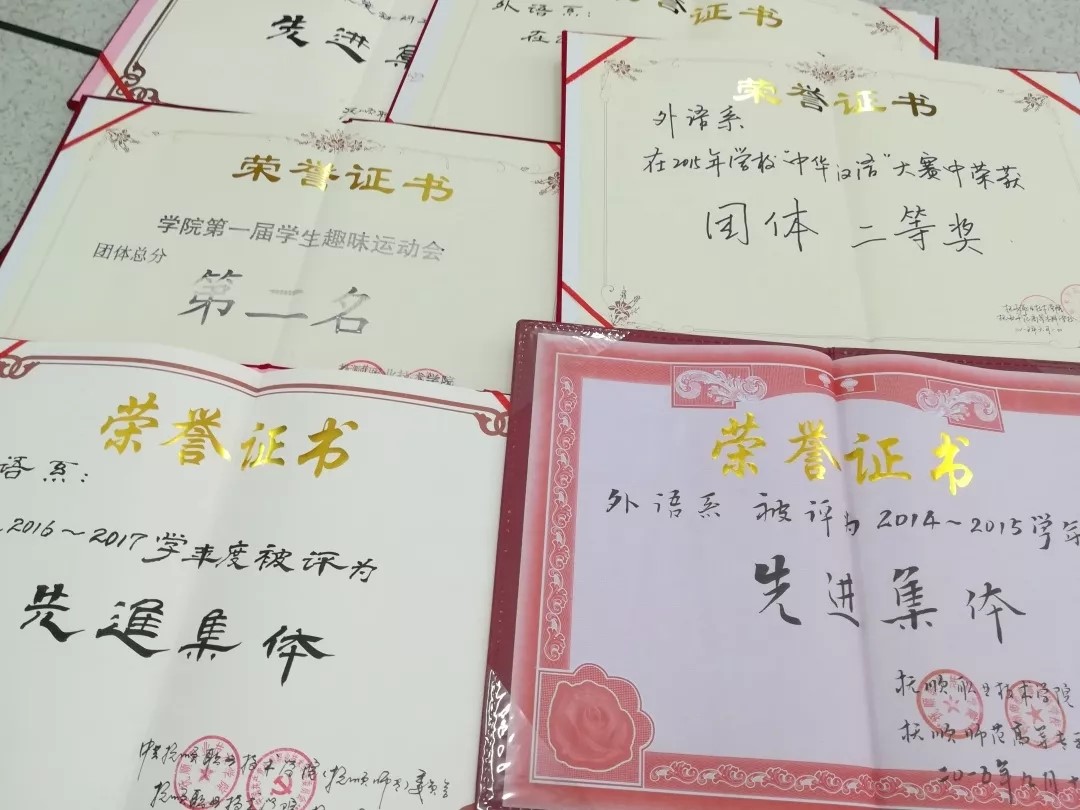 先进集
外语系:
证书
在
荣誉证书
学院第一届学生趣味运动会
团体总分
第二名
荣誉证书
外语系
在2015年学校"中华汉语"大赛中荣获
团体 二等奖
荣誉证书
语系:
2016~2017学年度被评为
先進集体
荣誉证书
外语系 被评为 2014~2015学年
先进集体
抚顺职业技术学院
抚顺师范高等专